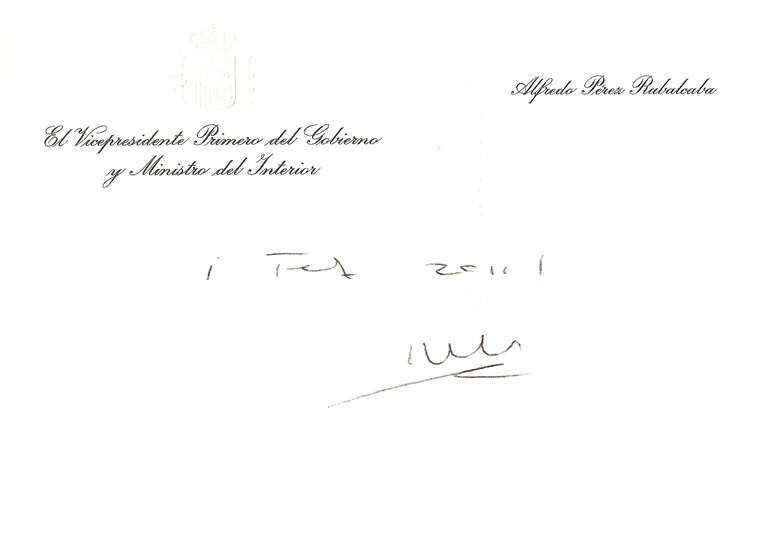 Alfredo Pérez Rubalcaba
El Vicepresidente Primero del Gobierno
y Ministro del Interior
¡ Feliz 2011 !